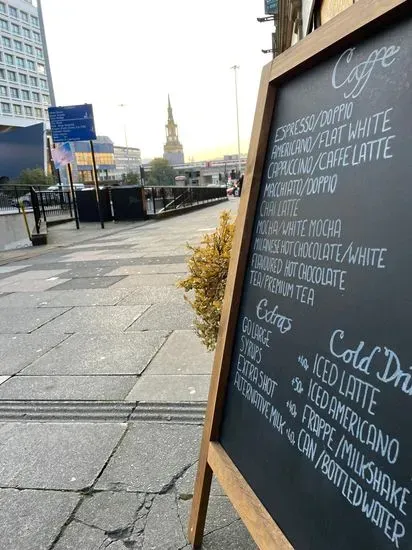 Coffee
ESPRESSO/DOPPIO
AMERICANO/FLAT WHITE
CAPPUCCINO/CAFFE LATTE
MACCHIATO/DOPPIO
CHAI LATTE
MOCHA/WHITE MOCHA
MILANESE HOT CHOCOLATE/WHITE
FLAVOURED HOT CHOCOLATE
TEA/PREMIUM TEA
Extras
GO LARGE +40p
SYRUPS +50p
EXTRA SHOT +60p
ALTERNATIVE MILK +40p
Cold Dri
ICED LATTE
ICED AMERICANO
FRAPPE/MILKSHAKE
CAN/BOTTLED WATER